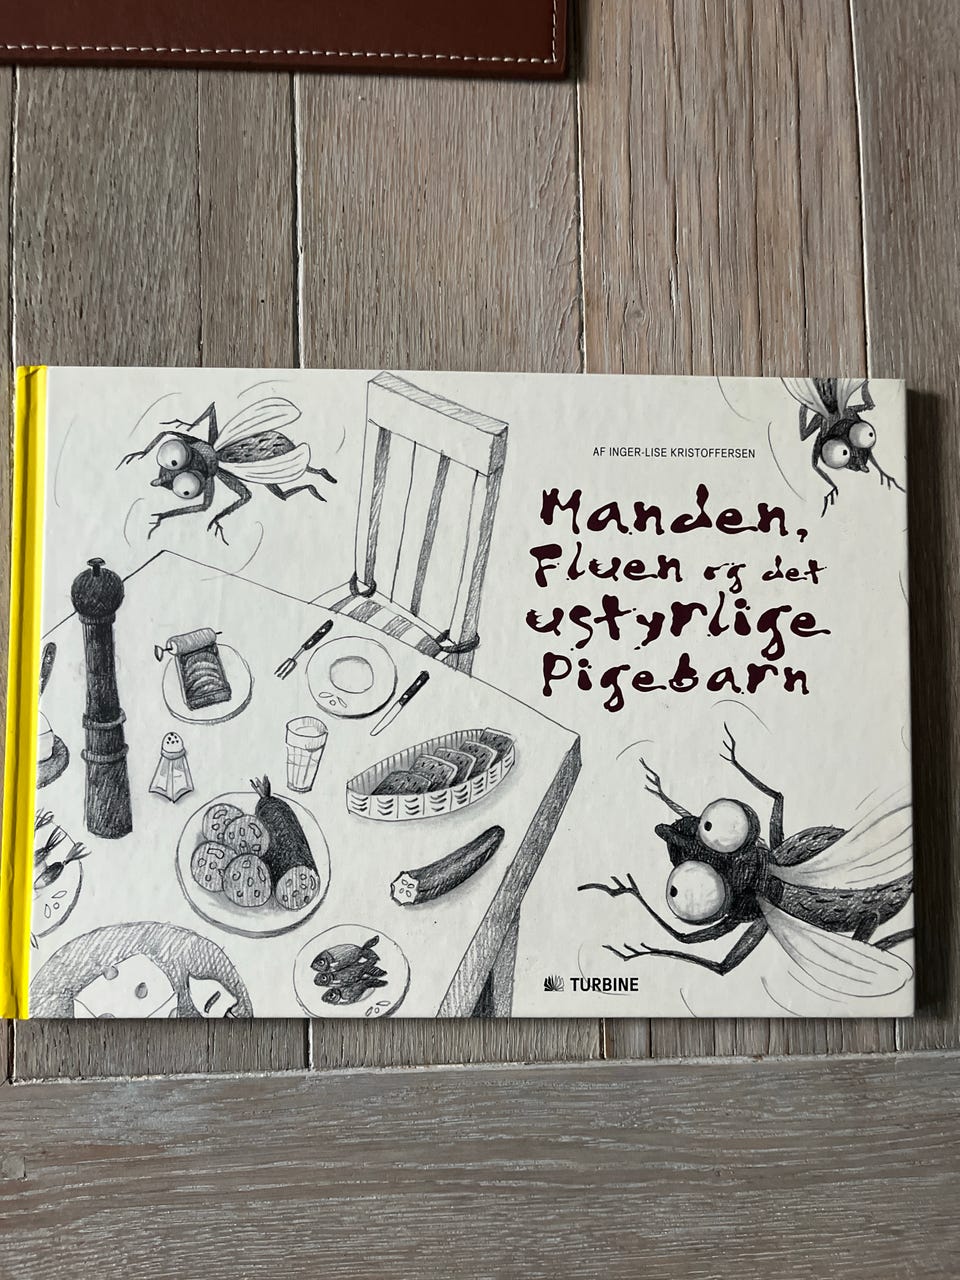 AF INGER-LISE KRISTOFFERSEN
Manden,
Fluen og det
ustyrlige
Pigebarn
TURBINE